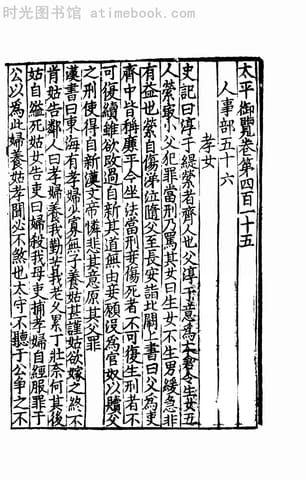 时光图书馆 - www.atimebook.com
太平御覽卷第四百一十五
人事部五十六
孝女
史記曰淳于緹縈者齊人也父淳于意為太倉令生女五
人縈最小父犯罪當刑乃罵其女曰生女不生男緩急非
有益也縈自傷涕泣隨父至長安詣北闕上書曰父為吏
齊中皆稱廉平今坐法當刑妾傷死者不可復生刑者不
可復續雖欲改過自新其道無由妾願沒為官奴以贖父
之刑使得自新漢文帝憐悲其意原其父罪
漢書曰東海有孝婦少寡無子養姑甚謹姑欲嫁之終不
肯姑告鄰人曰孝婦養我勤苦我老久累丁壯奈何其後
姑自縊死姑女告吏曰婦殺我母吏捕孝婦自經服罪于
公以為此婦養姑孝聞必不煞也太守不聽于公爭之不